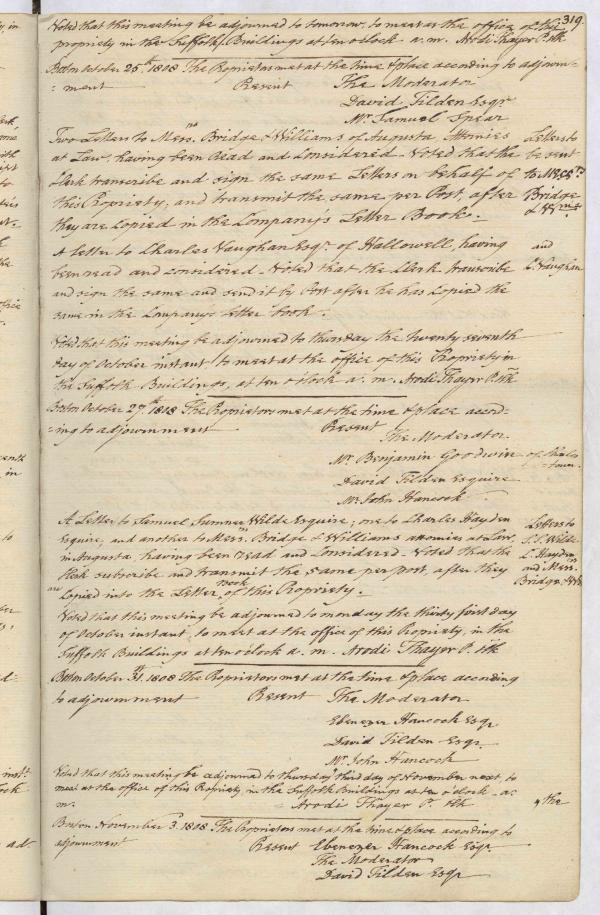 319
Voted that this meeting be adjourned to tomorrow, to meet at the office of this
propriety in the Suffolk Buildings at ten o clock a. m. Arodi Thayer P. Clk
Boston October 25th 1808 The Proprietors met at the time & place according to adjourn-
-ment Present The Moderator
David Tilden Esqr
Mr Samuel Spear
Two Letters to Messrs. Bridge & Williams of Augusta Attornies
at Law, having been Read and Considered - Voted that the
Clerk transcribe and sign the same Letters on behalf of
this Propriety, and transmit the same per Post, after
they are Copied in the Company's Letter Book.
Letters to
be sent
to Messrs
Bridge
& Wms
A Letter to Charles Vaughan Esqr. of Hallowell, having
been read and considered - Voted that the Clerk transcribe
and sign the same and send it by Post after he has Copied the
same in the Companys letter book.
and
C. Vaughan
Voted that this meeting be adjourned to thursday the twenty seventh
day of October instant, to meet at the office of this Propriety in
the Suffolk Buildings, at ten o clock a. m. Arodi Thayer P. Clk
Boston October 27th 1808 The Proprietors met at the time & place accord-
-ing to adjournment Present
The Moderator
Mr Benjamin Goodwin of Charles
-town
David Tilden Esquire
Mr John Hancock
A Letter to Samuel Sumner Wilde Esquire, one to Charles Hayden
Esquire, and another to Messrs. Bridge & Williams attornies at Law,
in Augusta, having been read and Considered - Voted that the
Clerk subscribe and transmit the same per post, after they
are Copied into the Letter book of this Propriety.
Letters to
S. S. Wilde
C. Hayden
and Messrs
Bridge & Wm
Voted that this meeting be adjourned to monday the thirty first day
of October instant, to meet at the office of this Propriety, in the
Suffolk Buildings at ten o clock a. m. Arodi Thayer P. Clk
Boston October 31st. 1808 The Proprietors met at the time & place according
to adjournment Present The Moderator
Ebenezer Hancock Esqr
David Tilden Esqr
Mr John Hancock
Voted that this meeting be adjourned to thursday third day of November next, to
meet at the office of this Propriety in the Suffolk Buildings at ten o clock a.
m. Arodi Thayer P. Clk
the
Boston November 3. 1808. The Proprietors met at the time & place according to
adjournment Present Ebenezer Hancock Esqr
The Moderator
David Tilden Esqr